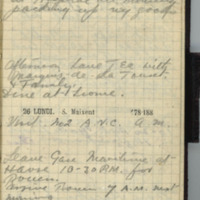 packing up my goods
Afternoon have Tea with
Family.
Dine at home.
26 LUNDI. S. Maixent 178-188
Visit No 2 A.V.C. a.m.
Leave Gare Maritime at
Havre 10-30 P.M. for
Rouen.
Arrive Rouen 7 A.M. next
morning